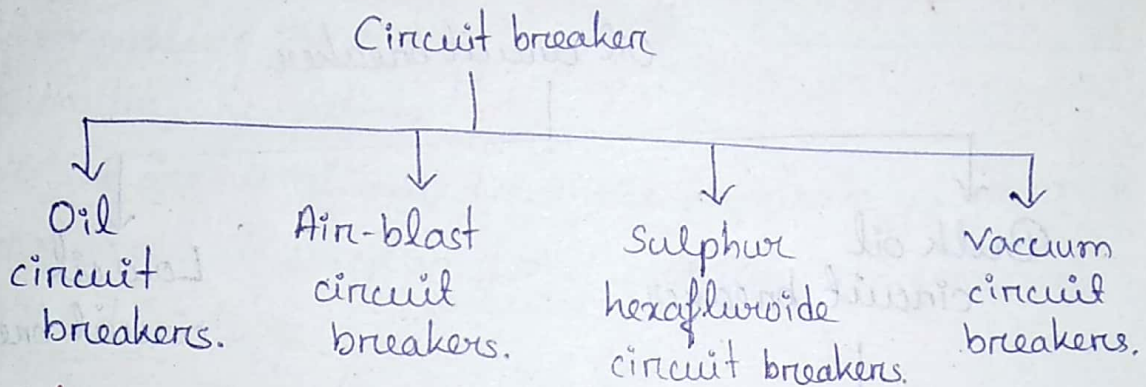 Circuit breaker
Oil
circuit
breakers.
Air-blast
circuit
breakers.
Sulphur
hexafluroide
circuit breakers.
Vaccum
circuit
breakers.